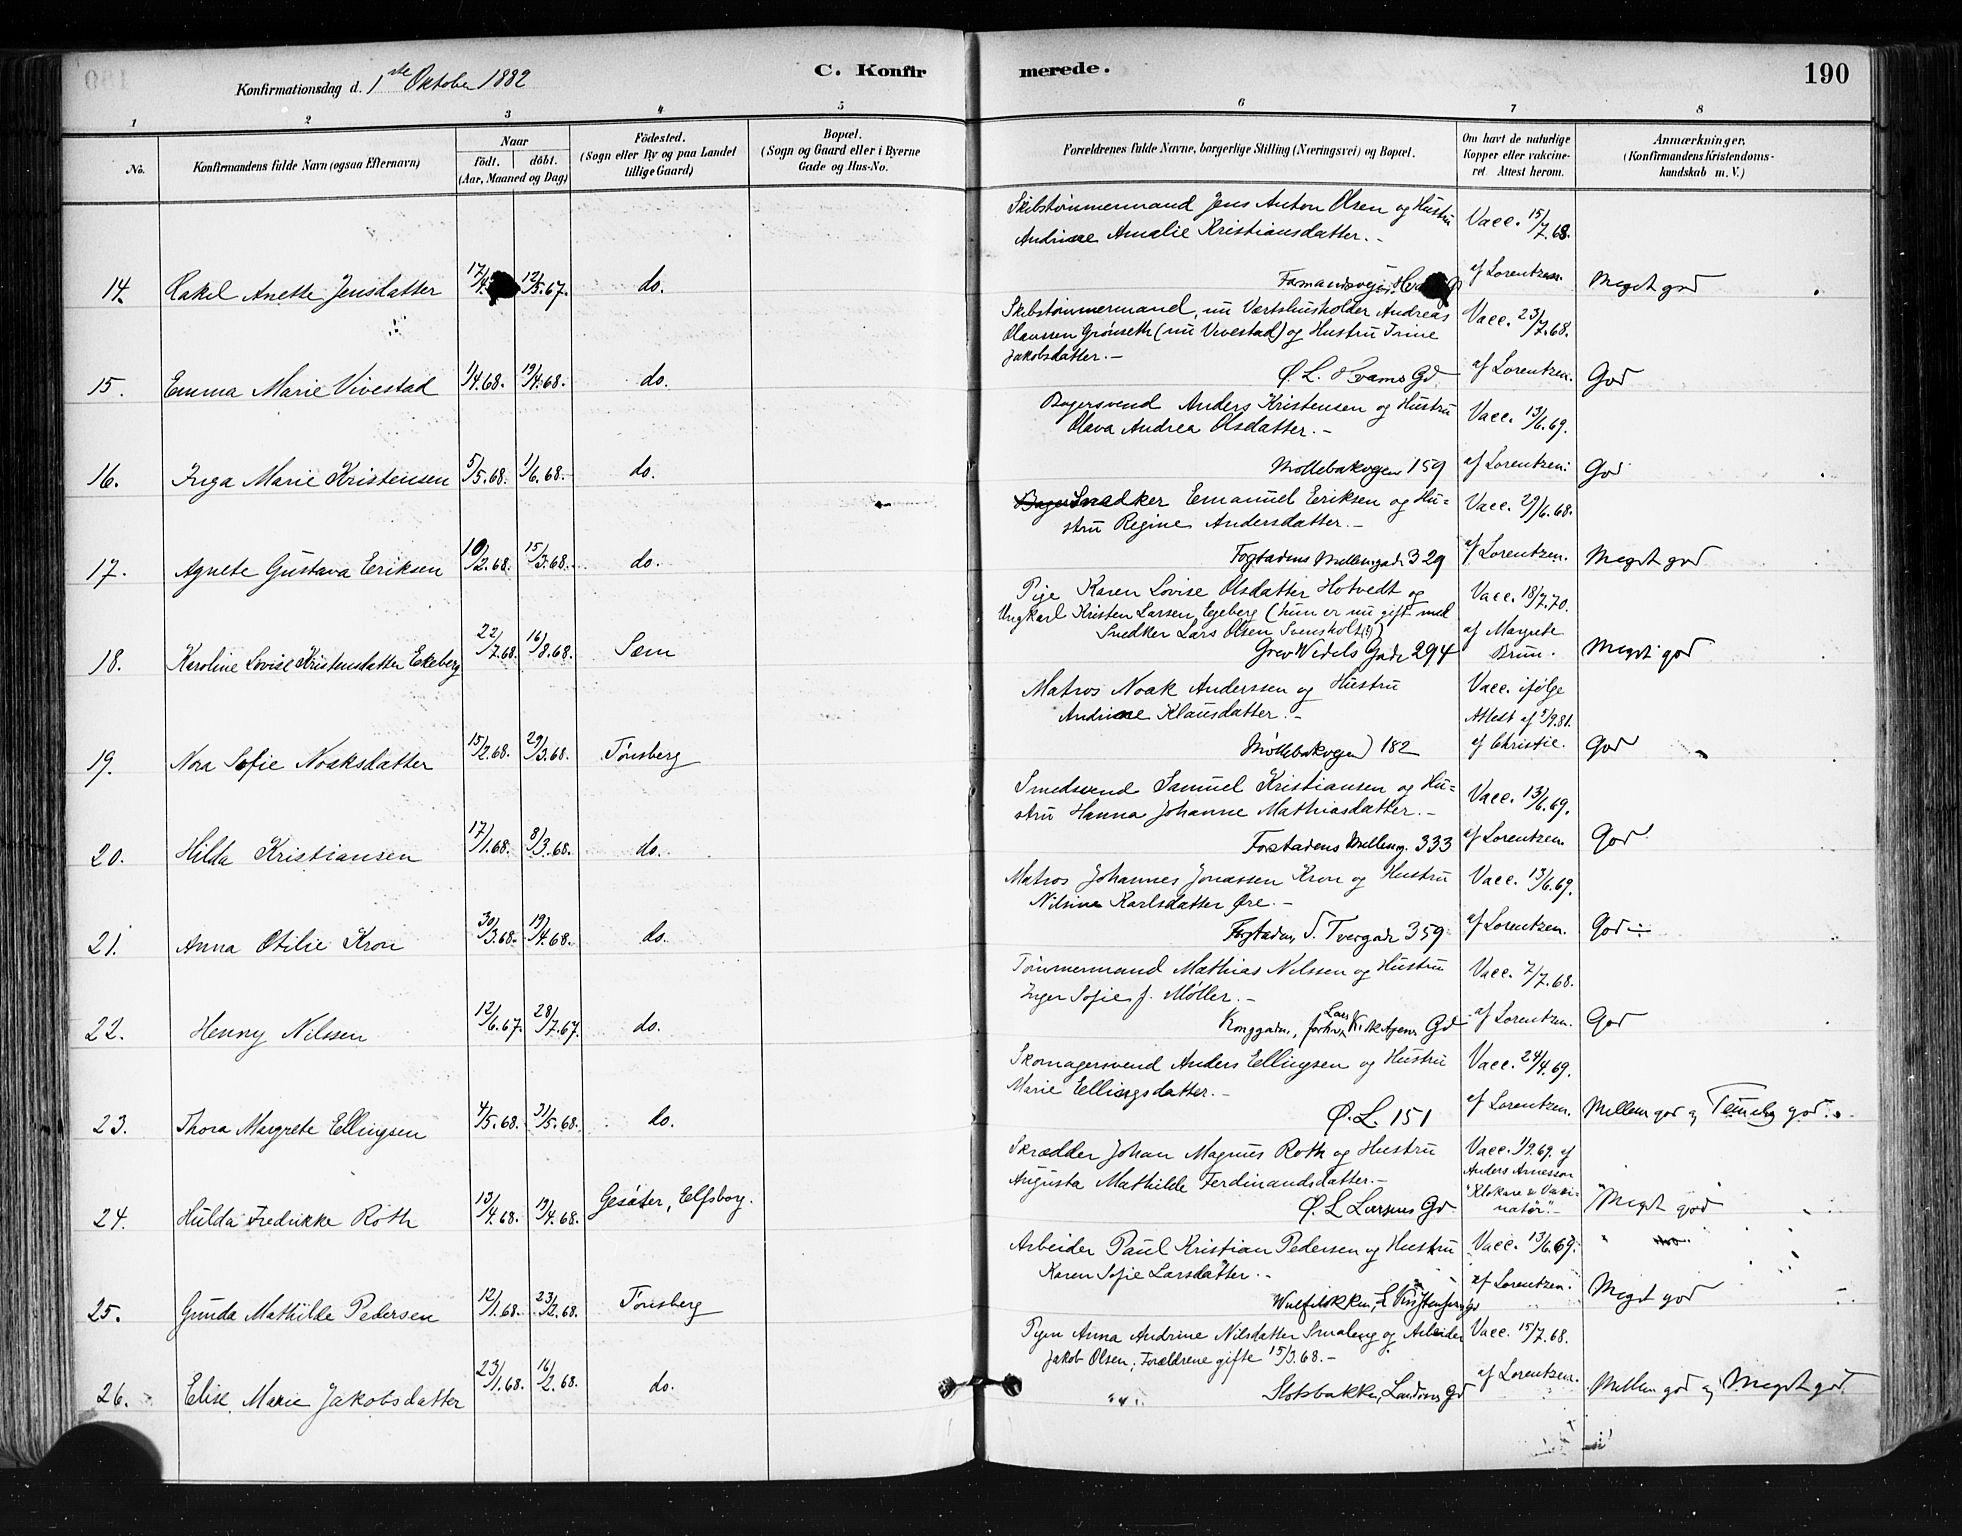 190
Konfirmationsdag d. 1ste Oktober 1882
C. Konfirmerede.
1 2 3 4 5 6 7 8
No.
Konfirmandens fulde Navn (ogsaa Efternavn)
Naar
født. døbt.
(Aar, Maaned og Dag)
Fødested.
(Sogn eller By og paa Landet
tillige Gaard)
Bopæl.
(Sogn og Gaard eller i Byerne
Gade og Hus-No.
Forældrenes fulde Navne, borgerlige Stilling (Næringsvei) og Bopæl.
Om havt de naturlige
Kopper eller vakcine-
ret Attest herom.
Anmærkninger.
(Konfirmandens Kristendoms-
kundskab m. V.)
Skibstømmermand Jens Anton Olsen og Hustru Vacc. 15/7.68.
Andrine Amalie Kristiansdatter.-
14. Rakel Anette Jensdatter 17/4. 12/5.67. do. af Lorentzen. Meget god
Skibstømmermand, nu Værtshusholder Andreas Vacc. 23/7.68.
Olaussen Grønseth (nu Vivestad) og Hustru Trine
Jakobsdatter.-
15. Emma Marie Vivestad 1/4.68. 19/4.68. do. Ø. L. Gd. af Lorentzen. God
Bagersvend Anders Kristensen og Hustru Vacc. 13/6.69.
Olava Andrea Olsdatter.-
16. Inga Marie Kristensen 5/5.68. 1/6.68. do. Møllebakvegen 159 af Lorentzen. God
Snedker Emanuel Eriksen og Hu- Vacc. 29/6.68.
stru Regine Andersdatter.-
17. Agnete Gustava Eriksen 10/2.68. 15/3.68. do. Mellemgade 329 af Lorentzen. Meget god
Pige Karen Lovise Olsdatter Hotvedt og Vacc. 18/7.70.
Ungkarl Kristen Larsen Egeberg (hun er nu gift med
Snedker Lars Olsen Svensholt) af Margrete
18. Karoline Lovise Kristensdatter Ekeberg 22/7.68. 16/8.68. Sem Grev Wedels Gade 294 Brun. Meget god
Matros Noak Anderssen og Hustru Vacc. ifølge
Andrine Klausdatter.- Attest af 5/9.81.
19. Nora Sofie Noaksdatter 15/2.68. 29/3.68. Tønsberg Møllebakvegen 182 af Christie. God
Smedsvend Samuel Kristiansen og Hu- Vacc. 13/6.69.
stru Hanna Johanne Mathiasdatter.-
20. Hilda Kristiansen 17/1.68. 8/3.68. do. Forstadens Mellemg. 333 af Lorentzen. God
Matros Johannes Jonassen Kron og Hustru Vacc. 13/6.69.
Nilsine Karlsdatter Øre.-
21. Anna Otilie Kron 30/3.68. 19/4.68. do. Tvergade 359 af Lorentzen. God
Tømmermand Mathias Nilssen og Hustru Vacc. 7/7.68.
Inger Sofie f. Møller.-
22. Henny Nilssen 12/6.67. 28/7.67. do. Gd af Lorentzen. God
Skomagersvend Anders Ellingsen og Hustru Vacc. 24/4.69.
Marie Ellingsdatter.-
23. Thora Margrete Ellingsen 4/5.68. 31/5.68. do. Ø.L. 151 af Lorentzen. Mellem god og Temelig god.
Skrædder Johan Magnus Roth og Hustru Vacc. 1/9.69. af
Augusta Mathilde Ferdinandsdatter.- Anders Arnesson
"Klokare & Vakci-
24. Hulda Fredrikke Roth 13/4.68. 19/4.68. Gesäter, Elfsborg. Ø. L. Larsens Gd. natör".- Meget god
Arbeider Paul Kristian Pedersen og Hustru Vacc. 13/6.69.
Karen Sofie Larsdatter.-
25. Gunda Mathilde Pedersen 12/1.68. 23/2.68. Tønsberg af Lorentzen. Meget god
Pigen Anna Andrine Nilsdatter Smaberg og Arbeider Vacc. 15/7.68.
Jakob Olsen; Forældrene gifte 15/3.68.-
26. Elise Marie Jakobsdatter 23/1.68. 16/2.68. do. Slotsbakken, Gd af Lorentzen. Mellem god og Meget god